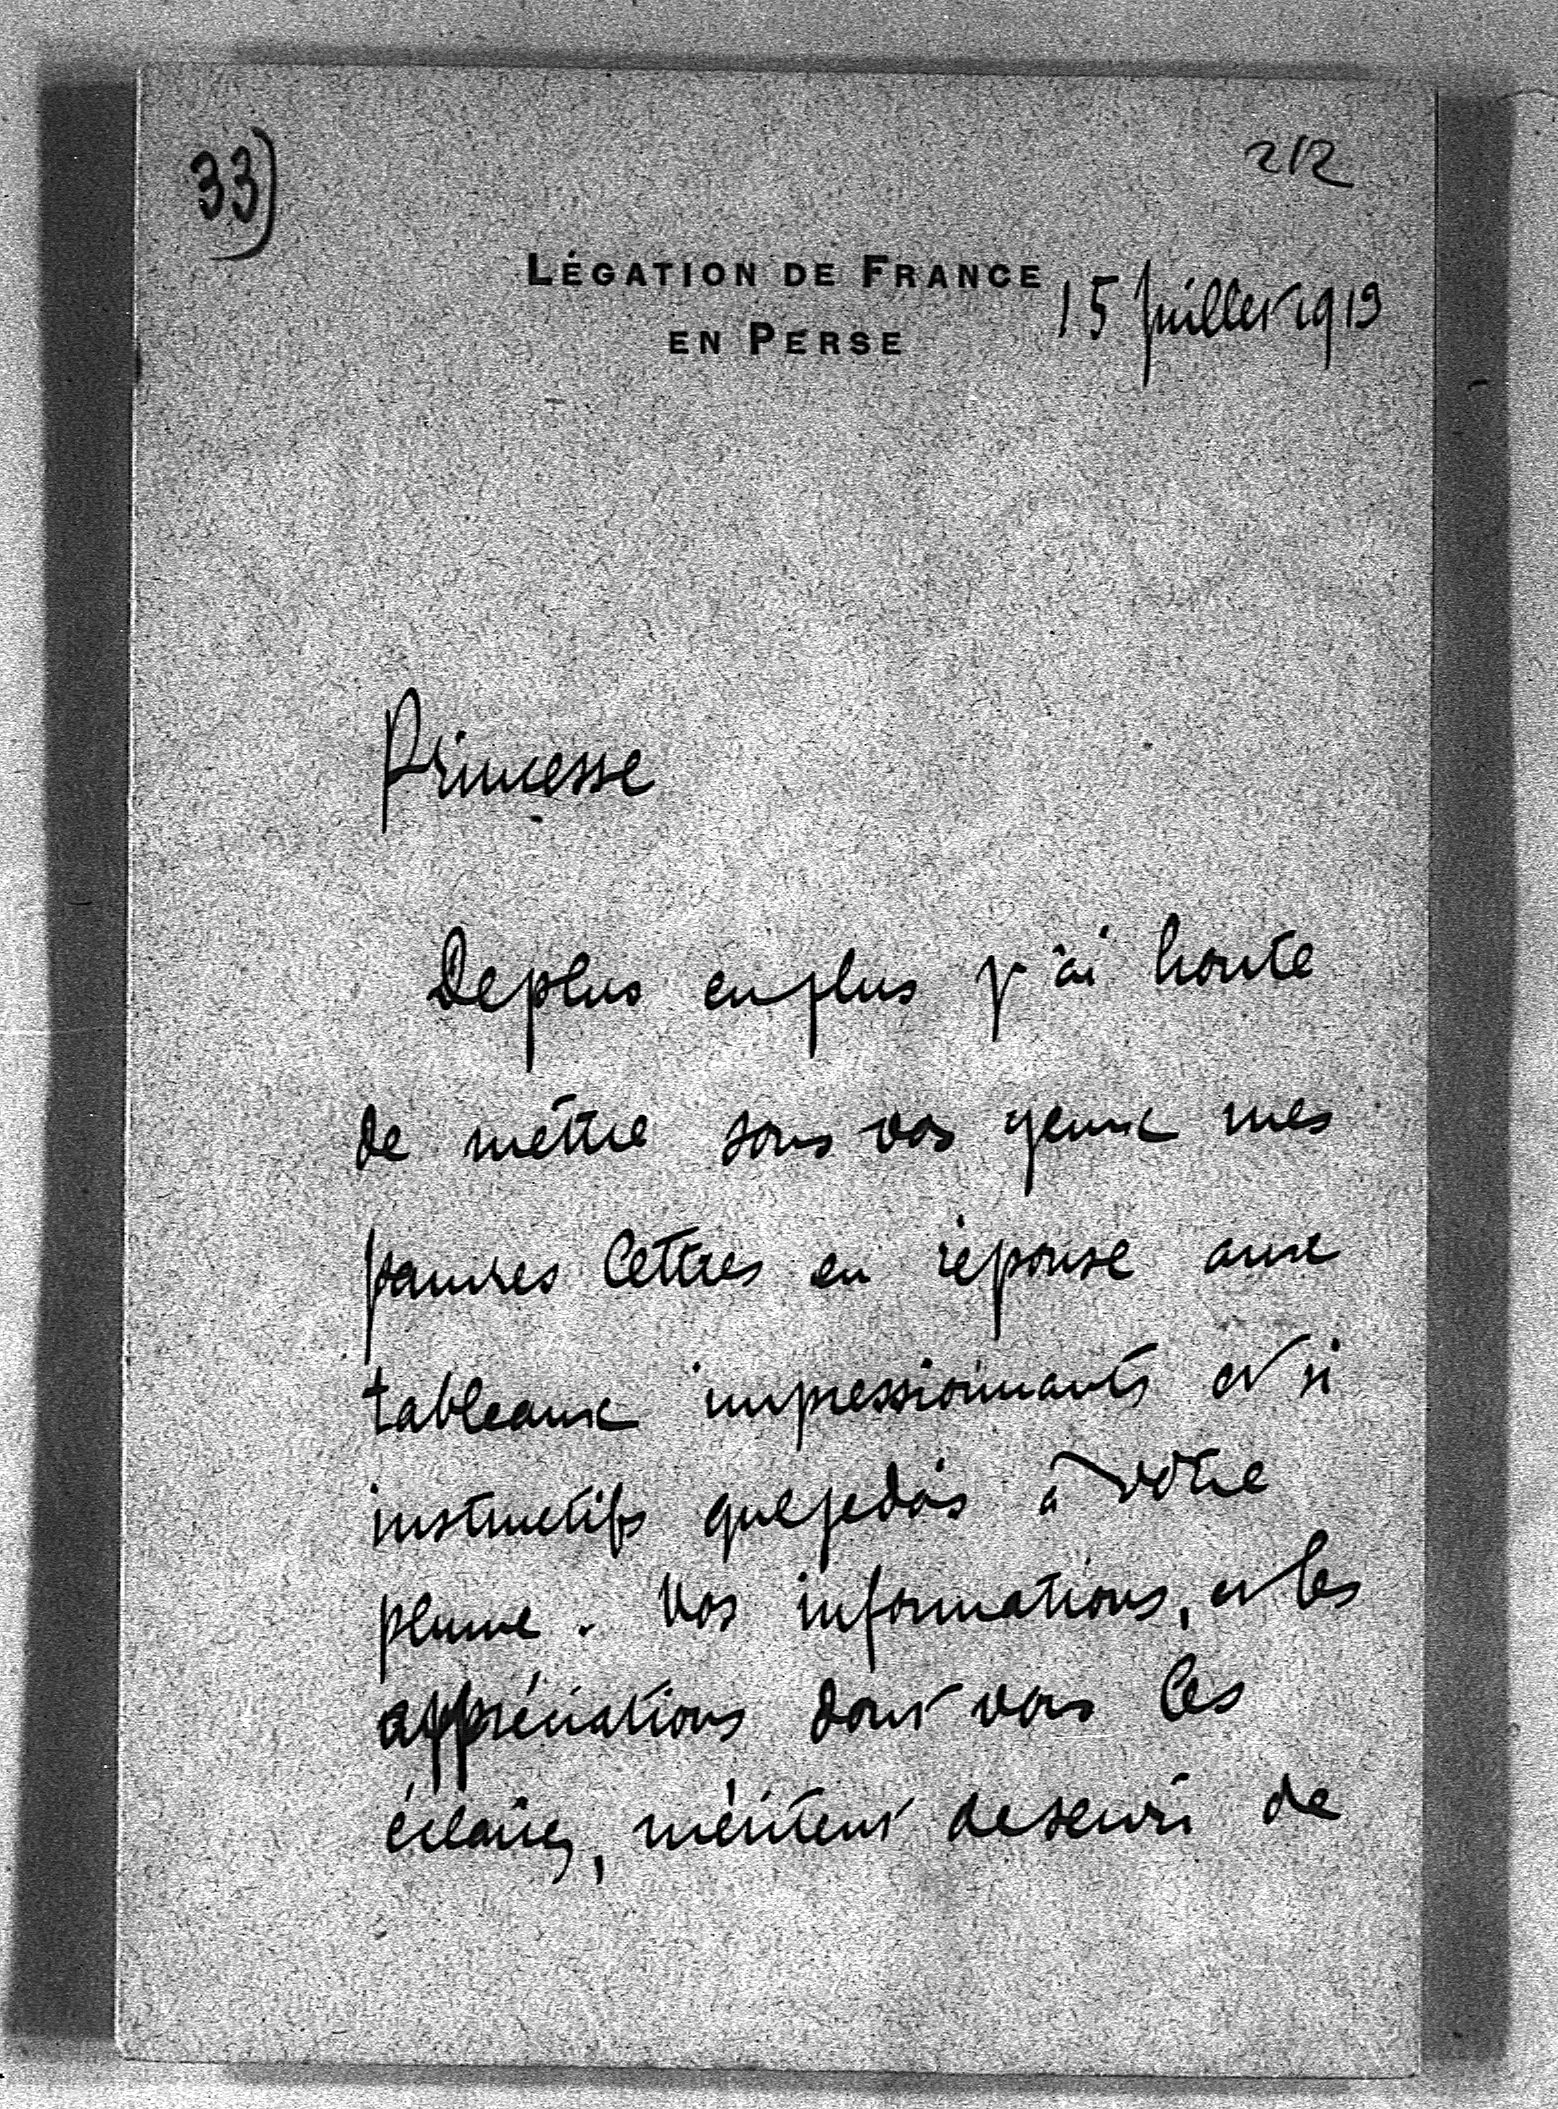 33)
212
LÉGATION DE FRANCE
EN PERSE
15 juillet 1919
Princesse
De plus en plus j'ai honte
de mettre sous vos yeux mes
pauvres lettres en réponse aux
tableaux impressionnants et si
instructifs que je dois à votre
plume. Vos informations, et les
appréciations dont vous les
éclairez, méritent de servir de